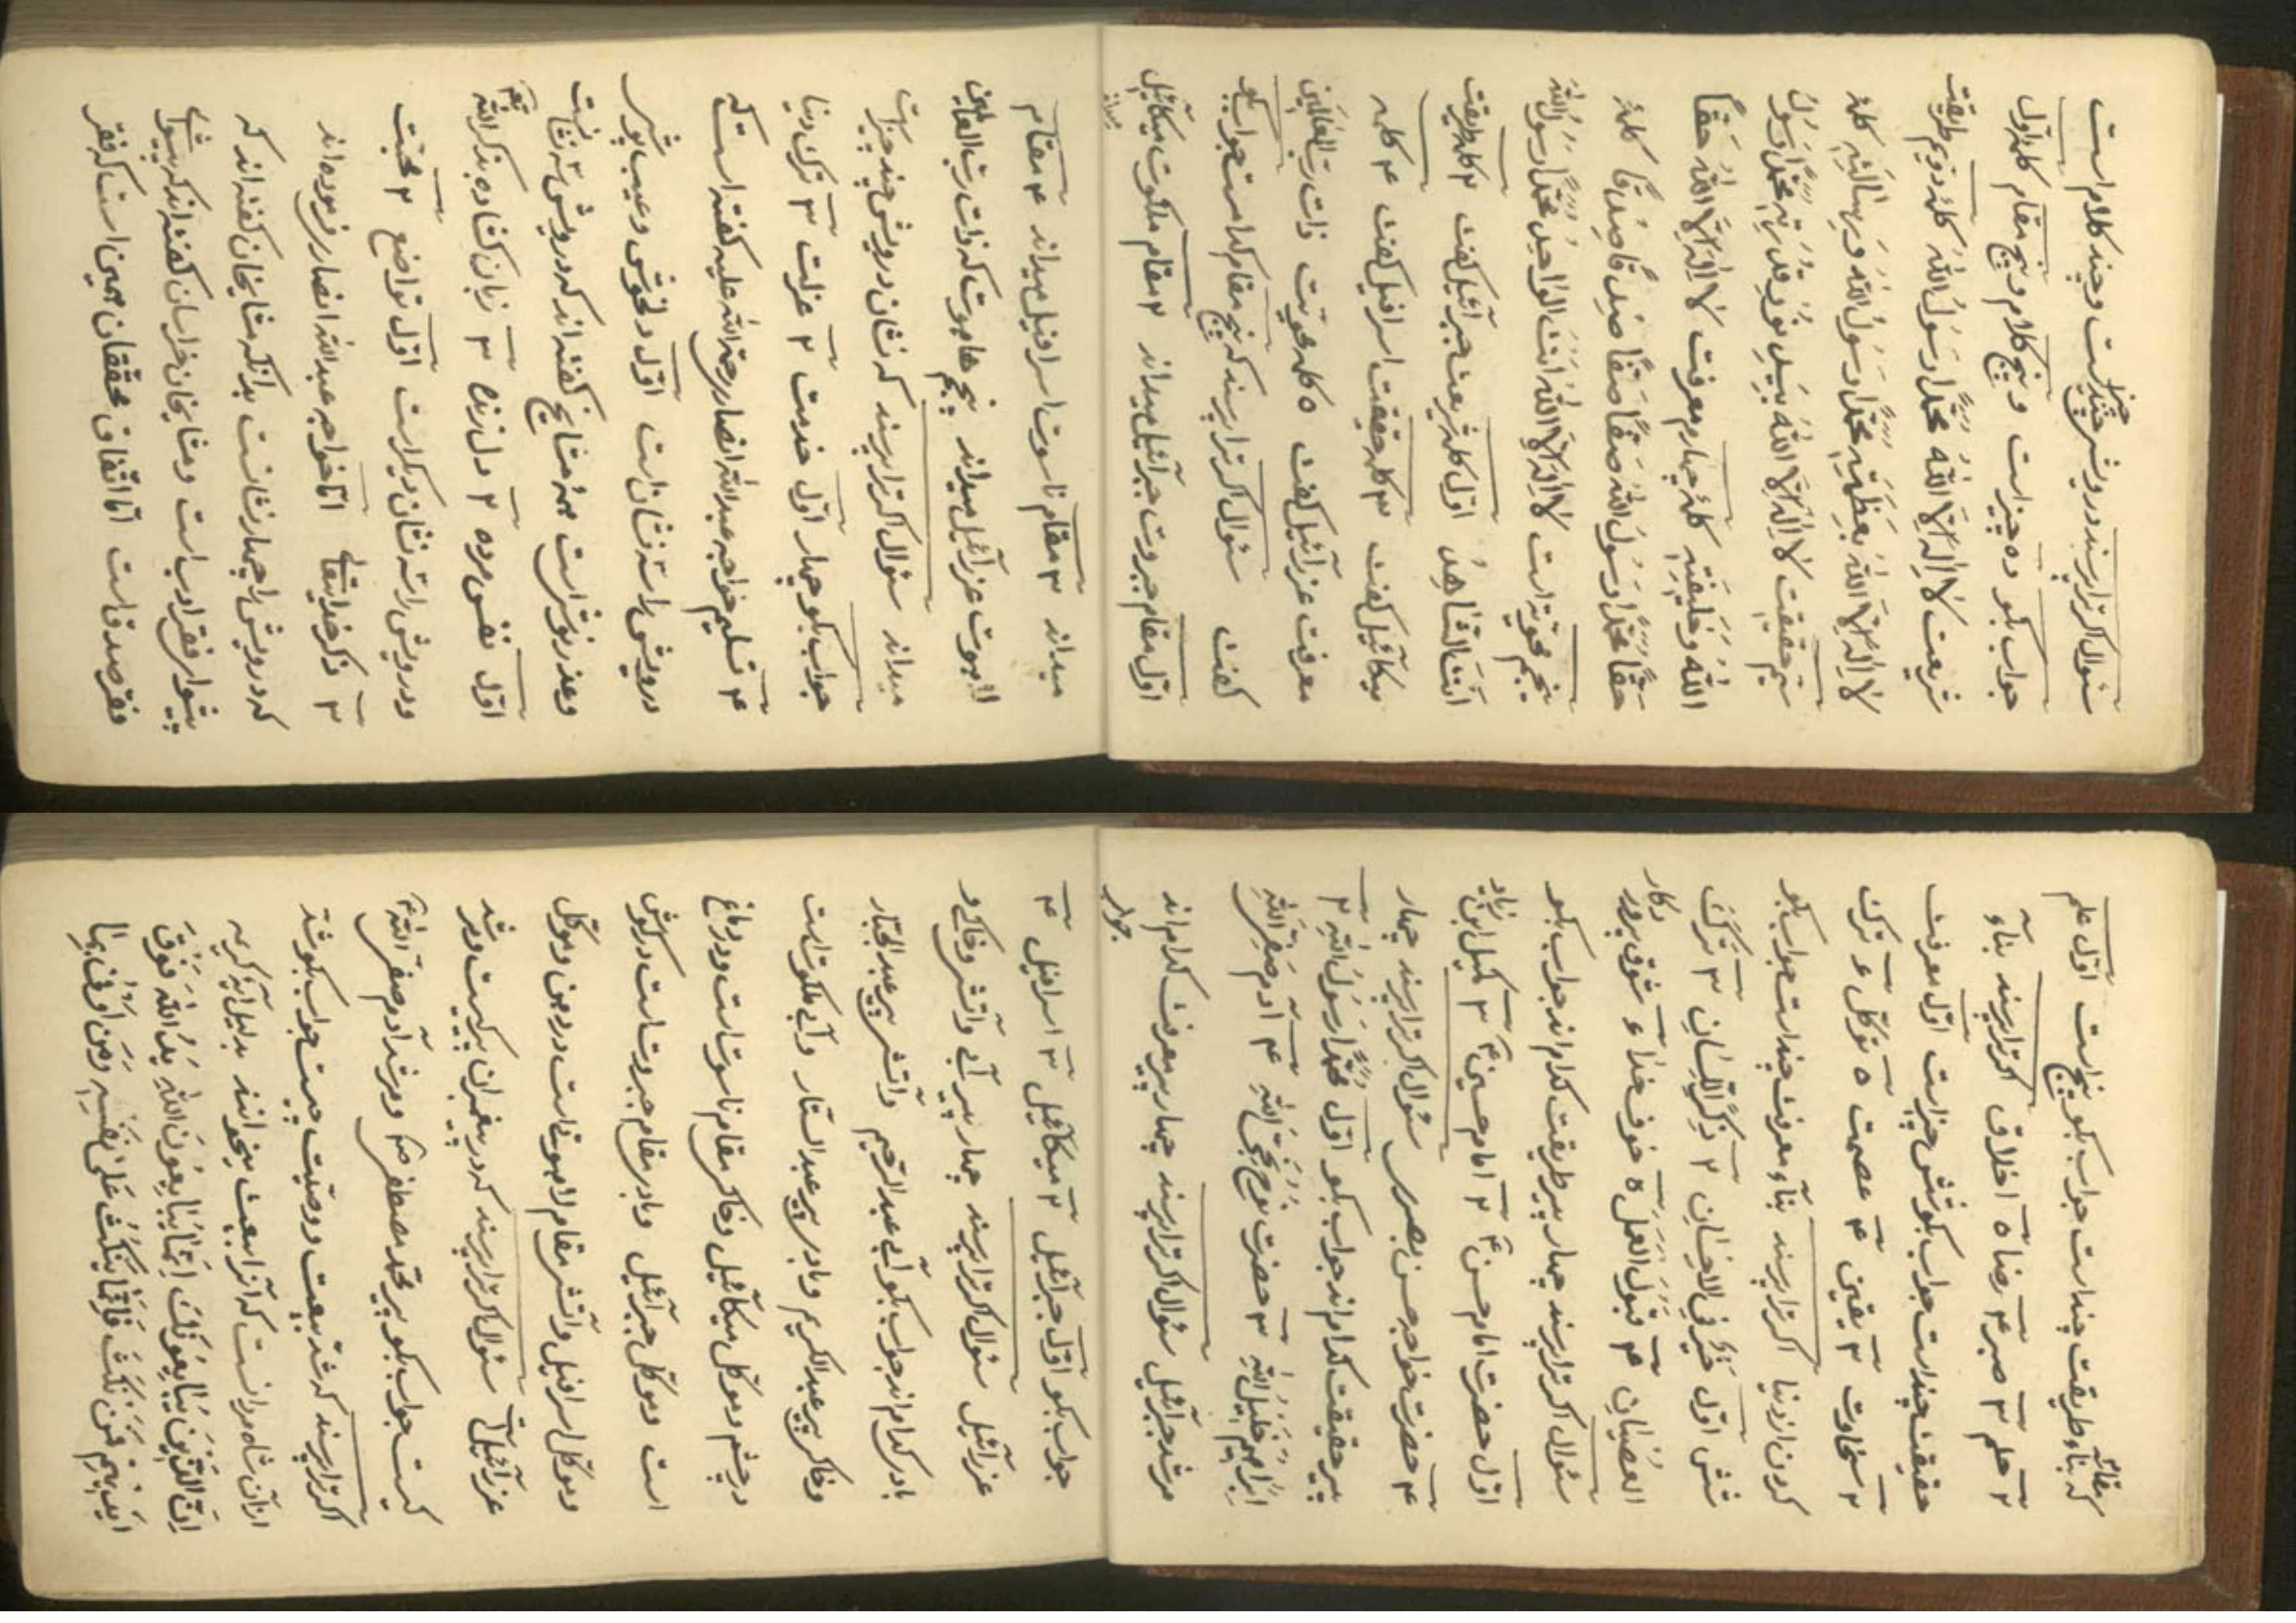 سئوال اکر ترا پرسند درویش چند حرفست و چند کلام است
جواب بکو ده چیز است و پنج کلام و پنج مقام کلمه اوّل
شریعت لا اِلهَ اِلّا اللهُ مُحَمَّدًا رَسُولُ اللهِ کلمهٔ دویم طریقت
لا اِلهَ اِلّا اللهُ بعَظَمَتِهِ مُحَمَّدًا رَسُولُ اللهِ وَ رِسَالَتِهِ کلمهٔ
سیّم حقیقت لا اِلهَ اِلّا اللهُ بِیَدِ نُورِ قُدْرَتِهِ مُحَمَّدًا رَسُولُ
اللهِ وَ خَلِیفَتِهِ کلمهٔ چهارم معرفت لا اِلهَ اِلّا اللهُ حَقًّا
حَقًّا مُحَمَّدًا رَسُولُ اللهِ صَفًّا صَفًّا صِدْقًا صِدْقًا کلمهٔ
پنجم محویّه است لا اِلهَ اِلّا اللهُ اَنتَ الوَاحِدُ مُحَمَّدًا رَسُولُ اللهِ
اَنتَ الشّاهِدُ اوّل کلمه شریعت جبرآئیل کفت ۲ کلمه طریقت
میکآئیل کفت ۳ کلمه حقیقت اسرافیل کفت ۴ کلمه
معرفت عزرآئیل کفت ۵ کلمه محویّت ذات رَبّ العَالَمین
کفت سئوال اکر ترا پرسند که پنج مقام کدامست جواب بکو
اوّل مقام جبروت جبرآئیل میداند ۲ مقام ملکوت میکآئیل
میداند
میداند ۳ مقام ناسوت اسرافیل میداند ۴ مقام
لاهوت عزرآئیل میداند پنجم هاهوت که ذات ربّ العالمین
میداند سئوال اکر ترا پرسند که نشان درویش چند چیز است
جواب بکو چهار اوّل خدمت ۲ عزلت ۳ ترک دنیا
۴ تسلیم خواجه عبدالله انصار رحمة الله علیه کفته است که
درویش را سه نشان است اوّل دلخوش و عیب پوش
و عذر نوش است همهٔ مشایخ کفته اند که درویش سه نشانست
اوّل نفس مرده ۲ دل زنده ۳ زبان کشاده بذکر الله
و درویش را سه نشان دیکر است اوّل تواضع ۲ محبّت
۳ ذکر خدایتعالی امّا خواجه عبدالله انصار فرموده اند
که درویش را چهار نشانست بدانکه مشایخان کفته اند که
پیشواء فقر ادب است و مشایخان خراسان کفته اند که پیشواء
فقر صدق است امّا اتّفاق محقّقان همین است که فقر
که بناء طریقت چند است جواب بکو پنج است اوّل علم
۲ حلم ۳ صبر ۴ رضا ۵ اخلاق اکر ترا پرسند بنآء
حقیقت چند است جواب بکو شش چیز است اوّل معرفت
۲ سخاوت ۳ یقین ۴ عصمت ۵ توکّل ۶ ترک
کردن از دنیا اکر ترا پرسند بنآء معرفت چند است جواب بکو
شش اوّل خَیْر فِی الاِحسَان ۲ ذِکْرُ اللِّسَان ۳ تَرْکُ
العِصْیَان ۴ قَبُولُ العَمَل ۵ خوف خدا ۶ شوق پروردکار
سئوال اکر ترا پرسند چهار پیر طریقت کدام اند جواب بکو
اوّل حضرت امام حسن ۲ امام حسین ۳ کمیل ابن زیاد
۴ حضرت خواجه حسن بصری سئوال اکر ترا پرسند چهار
پیر حقیقت کدام اند جواب بکو اوّل مُحَمَّدًا رَسُولُ اللهِ ۲
اِبْرَاهِیم خَلِیلُ اللهِ ۳ حضرت نوح نَجِیُّ اللهِ ۴ آدم صَفِیُّ اللهِ
مرشد جبرآئیل سئوال اکر ترا پرسند چهار پیر معرفت کدام اند
جواب
جواب بکو اوّل جبرآئیل ۲ میکآئیل ۳ اسرافیل ۴
عزرآئیل سئوال اکر ترا پرسند چهار پیر آبی و آتشی و خاکی و
بادی کدام اند جواب بکو آبی عبدالرّحیم و آتشی پیر عبدالجبّار
و خاکی پیر عبدالکریم و بادی پیر عبدالستّار و آبی ملکوت است
در چشم و موکّل میکآئیل و خاکی مقام ناسوت است و در دماغ
است و موکّل جبرآئیل و بادی مقام جبروت است در کوش
و موکّل اسرافیل و آتشی مقام لاهوت است در دهن و موکّل
عزرآئیل است سئوال اکر ترا پرسند که در پیغمبران پیر کیست و مرشد
کیست جواب بکو پیر محمّد مصطفی و مرشد آدم صفی الله
اکر ترا پرسند که رشد بیعت و وصیّت چیست جواب بکو رشد
از آن شاه مردانست که آنرا بیعت میخوانند بدلیل آیهٔ کریمه
اِنَّ الَّذِینَ یُبَایِعُونَکَ اِنَّمَا یُبَایِعُونَ اللهَ یَدُ اللهِ فَوْقَ
اَیْدِیهِمْ فَمَنْ نَکَثَ فَاِنَّمَا یَنْکُثُ عَلَی نَفْسِهِ وَمَنْ اَوْفَی بِمَا